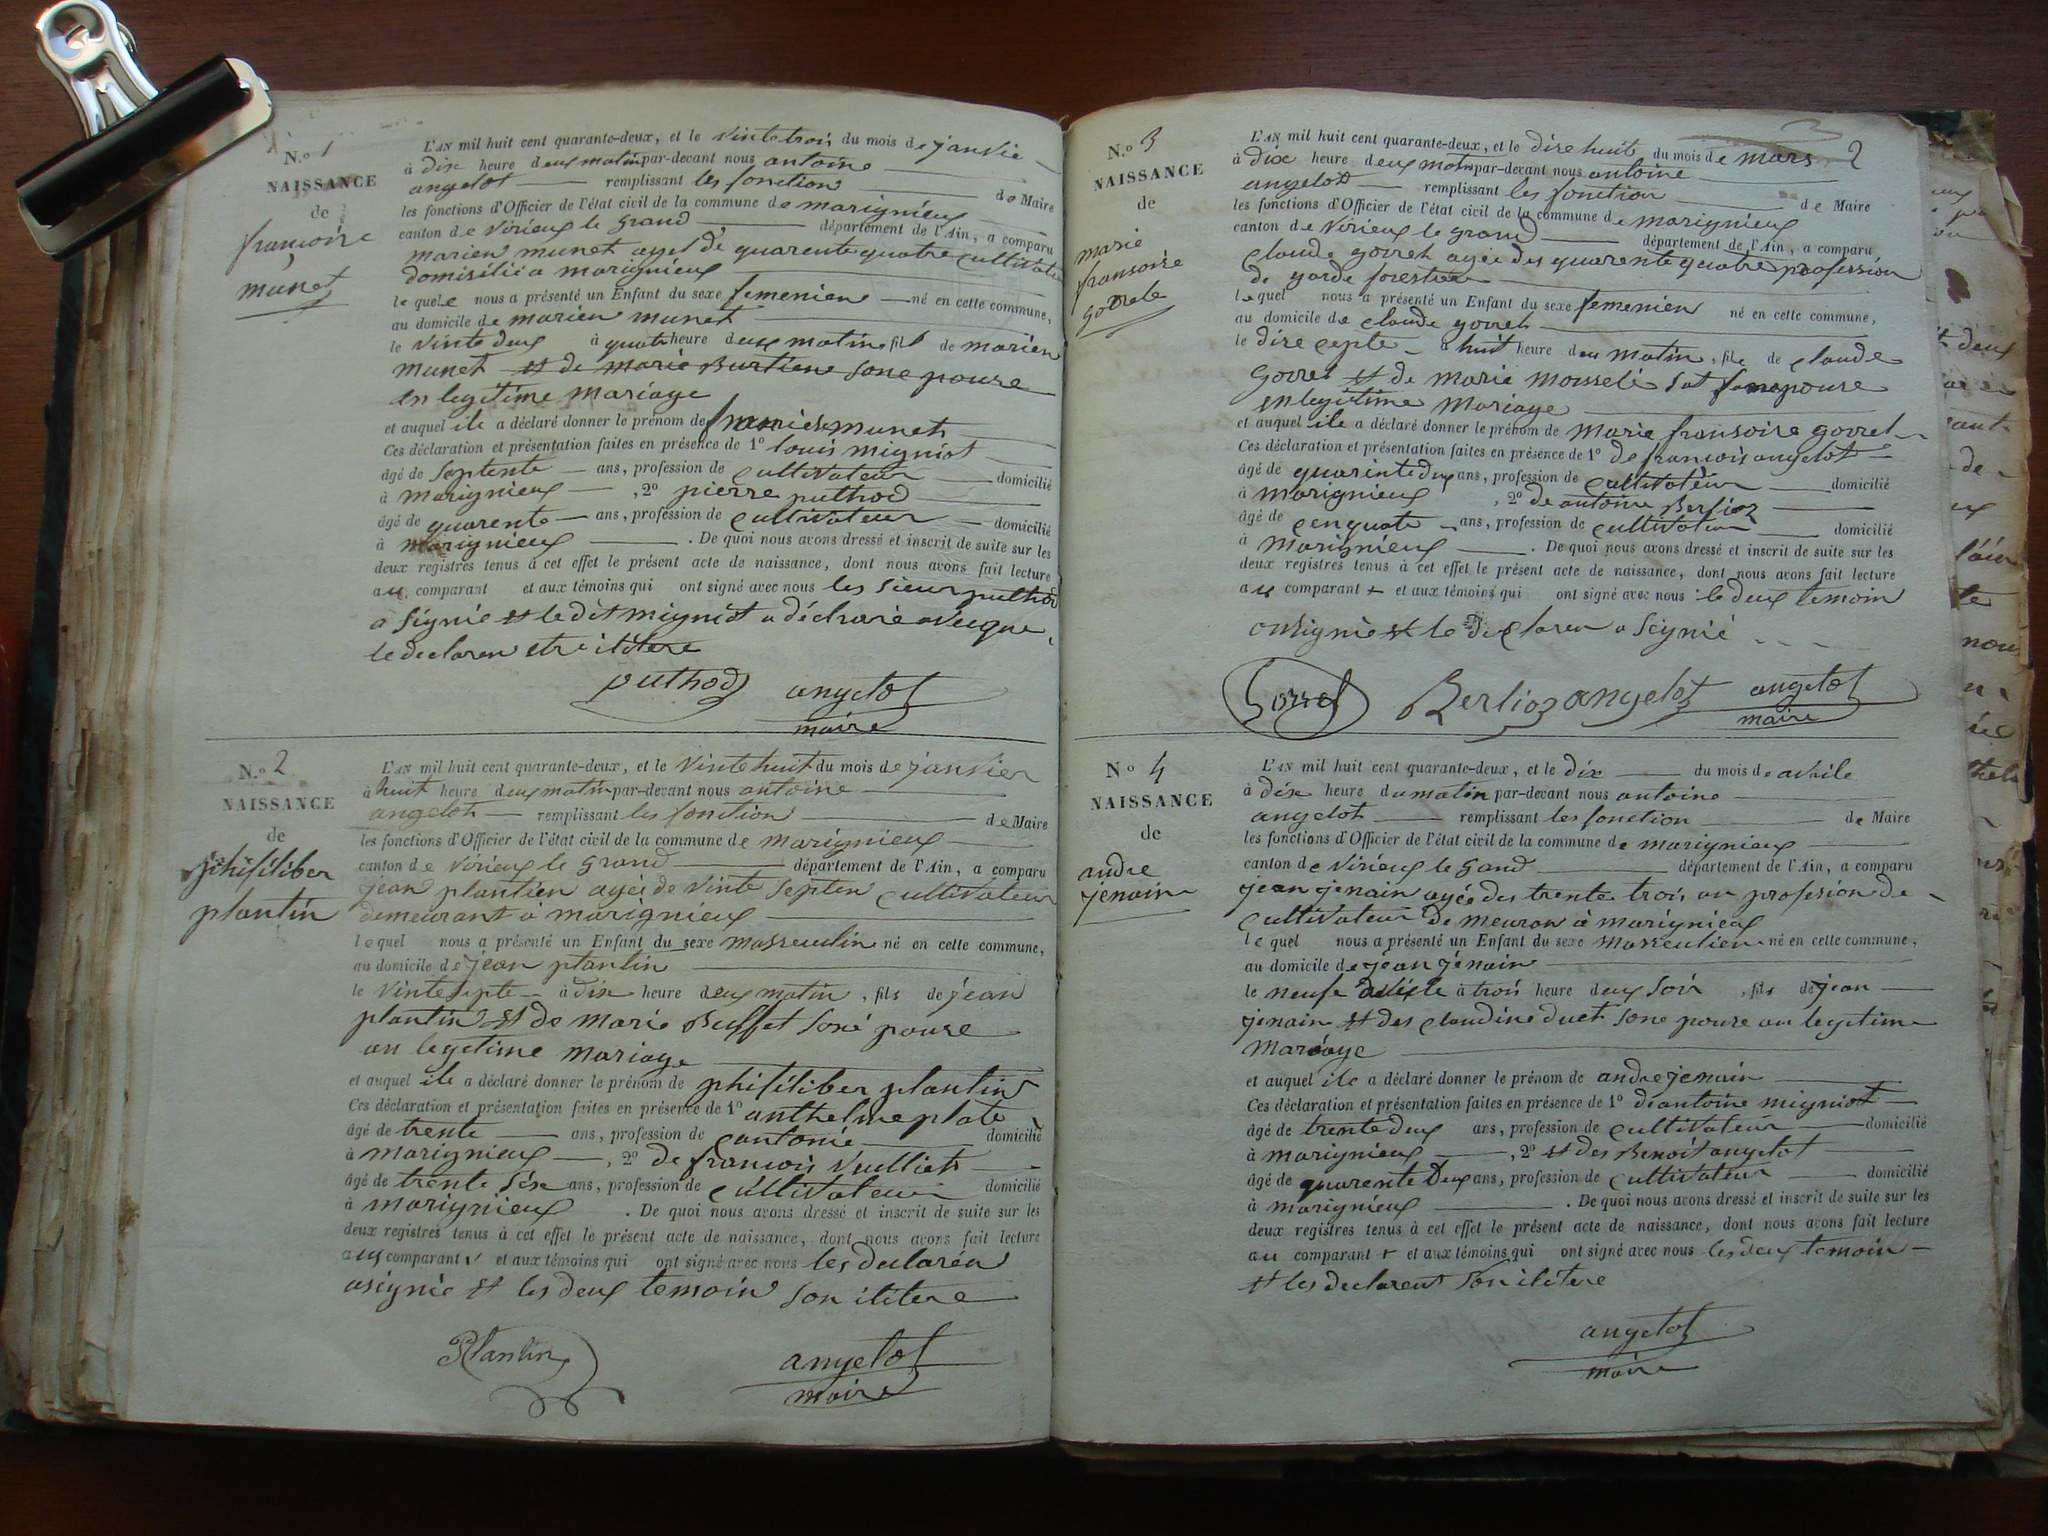 N.o 1
NAISSANCE
de
francoise
munet
L'AN mil huit cent quarante-deux, et le vintetrois du mois de janvie
à dix heure deux matin par-devant nous antoine
angelot remplissant les fonction de Maire
les fonctions d'Officier de l'état civil de la commune de marignieux
canton de virieux le grand département de l'Ain, a comparu
marien munet ayet de quarente quatre cultivateu
domisilié a marignieux
le quele nous a présenté un Enfant du sexe femenien né en cette commune,
au domicile de marien munet
le vinte deux à quatr heure deux matin fil de marien
munet et de marie Burtiene sone pouse
en legitime mariage
et auquel ile a déclaré donner le prénom de munet
Ces déclaration et présentation faites en présence de 1º louis migniot
âgé de septente ans, profession de cultivateur domicilié
à marignieux , 2º pierre puthod
âgé de quarente ans, profession de cultivateur domicilié
à marignieux . De quoi nous avons dressé et inscrit de suite sur les
deux registres tenus à cet effet le présent acte de naissance, dont nous avons fait lecture
au comparant et aux témoins qui ont signé avec nous les sieur puthod
a signié et le dit migniot a déclarié avecque
le declaren etre ilitere
puthod angelot
maire
N.o 2
NAISSANCE
de
phiſiliber
plantin
L'AN mil huit cent quarante-deux, et le vinte huit du mois de janvier
à huit heure deux matin par-devant nous antoine
angelot remplissant les fonction de Maire
les fonctions d'Officier de l'état civil de la commune de marignieux
canton de virieux le grand département de l'Ain, a comparu
jean plantien ayée de vinte septen cultivateur
demeurant à marignieux
le quel nous a présenté un Enfant du sexe masseculin né en cette commune,
au domicile de jean plantin
le vintesepte à dix heure deux matin , fils de jean
plantin et de marie Buffet soné pouse
an legetime mariage
et auquel ile a déclaré donner le prénom de phiſiliber plantin
Ces déclaration et présentation faites en présence de 1º anthelme plate
âgé de trente ans, profession de cantonié domicilié
à marignieux , 2º de francois vuilliet
âgé de trente six ans, profession de cultivateur domicilié
à marignieux . De quoi nous avons dressé et inscrit de suite sur les
deux registres tenus à cet effet le présent acte de naissance, dont nous avons fait lecture
aux comparant et aux témoins qui ont signé avec nous les declaren
asignie et les deux temoin son ilitere
Plantin angelot
maire
3
2
N.o 3
NAISSANCE
de
marie
fransoise
gorrele
L'AN mil huit cent quarante-deux, et le dixe huit du mois de mars
à dix heure deux matin par-devant nous antoine
angelot remplissant les fonction de Maire
les fonctions d'Officier de l'état civil de la commune de marignieux
canton de virieux le grand département de l'Ain, a comparu
claude gorret ayée des quarente quatre profession
de garde forestier
le quel nous a présenté un Enfant du sexe femenien né en cette commune,
au domicile de claude gorret
le dixe cepte à huit heure deu matin , file de claude
gorret et de marie mousselé pouse
en legitime mariage
et auquel ile a déclaré donner le prénom de marie fransoise gorrel
Ces déclaration et présentation faites en présence de 1º de francois angelot
âgé de quarente deux ans, profession de cultivateur domicilié
à marignieux , 2º de antoine Berlioz
âgé de cenquate ans, profession de cultivateur domicilié
à marignieux . De quoi nous avons dressé et inscrit de suite sur les
deux registres tenus à cet effet le présent acte de naissance, dont nous avons fait lecture
au comparant et aux témoins qui ont signé avec nous le deux temoin
on signie et le declaren a seignié
Gorrel Berlioz angelot angelot
maire
Nº 4
NAISSANCE
de
andre
jenain
L'AN mil huit cent quarante-deux, et le dix du mois de avrile
à dix heure du matin par-devant nous antoine
angelot remplissant les fonction de Maire
les fonctions d'Officier de l'état civil de la commune de marignieux
canton de virieux le gand département de l'Ain, a comparu
jean jenain ayée des trente trois an profesion de
cultivateur de meuran à marignieux
le quel nous a présenté un Enfant du sexe masseculien né en cette commune,
au domicile de jean jenain
le neufe à trois heure deux soir , fils de jean
jenain et des claudine duet sone pouse au legetime
mariage
et auquel ile a déclaré donner le prénom de andre jenain
Ces déclaration et présentation faites en présence de 1º de antoine migniot
âgé de trente deux ans, profession de cultivateur domicilié
à marignieux , 2º et des Benoit angelot
âgé de quarente deux ans, profession de cultivateur domicilié
à marignieux . De quoi nous avons dressé et inscrit de suite sur les
deux registres tenus à cet effet le présent acte de naissance, dont nous avons fait lecture
au comparant et aux témoins qui ont signé avec nous les deux temoin
et les declarent son ilitere
angelot
maire